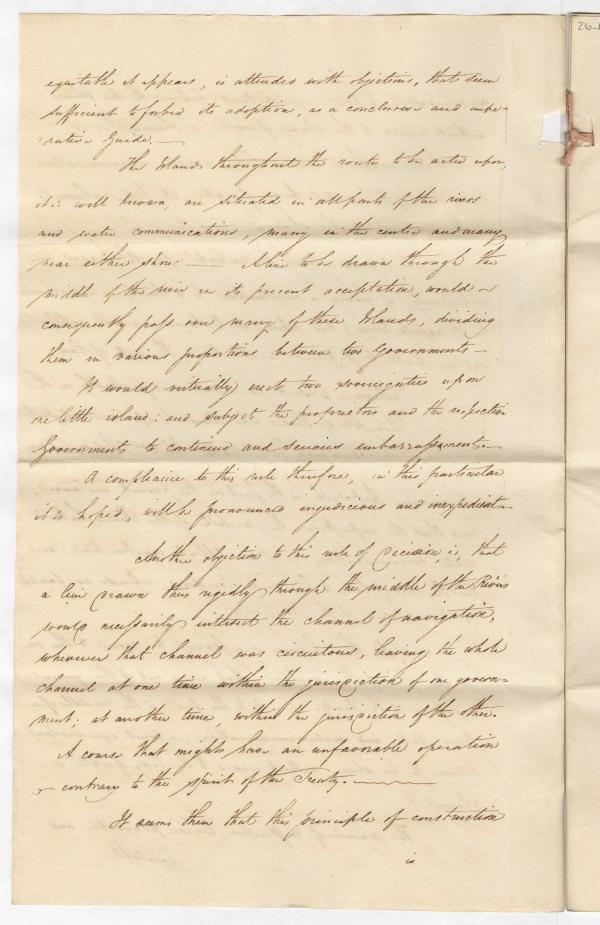 equitable it appears, is attended with objections, that seem
sufficient to forbid its adoption, as a conclusive and impe-
rative Guide.—
The Islands throughout the route to be acted upon,
it is well known, are situated in all parts of the rivers
and water communications, many in the centre and many
near either shore — A line to be drawn through the
middle of the river in its present acceptation, would
consequently pass over many of these Islands, dividing
them in various proportions between two Governments—
It would virtually erect two sovereignties upon
one little island: and subject the proprietors and the respective
Governments to continued and serious embarrassments.
A compliance to this rule therefore, in this particular
it is hoped, will be pronounced injudicious and inexpedient—
Another objection to this rule of decision, is, that
a line drawn thus rigidly through the middle of the Rivers
would necessarily intersect the channel of navigation,
wherever that channel was circuitous, leaving the whole
channel at one time within the jurisdiction of one govern-
ment; at another time, within the jurisdiction of the other.
A course that might have an unfavorable operation
contrary to the spirit of the Treaty.—
It seems then that this principle of construction
is
26-